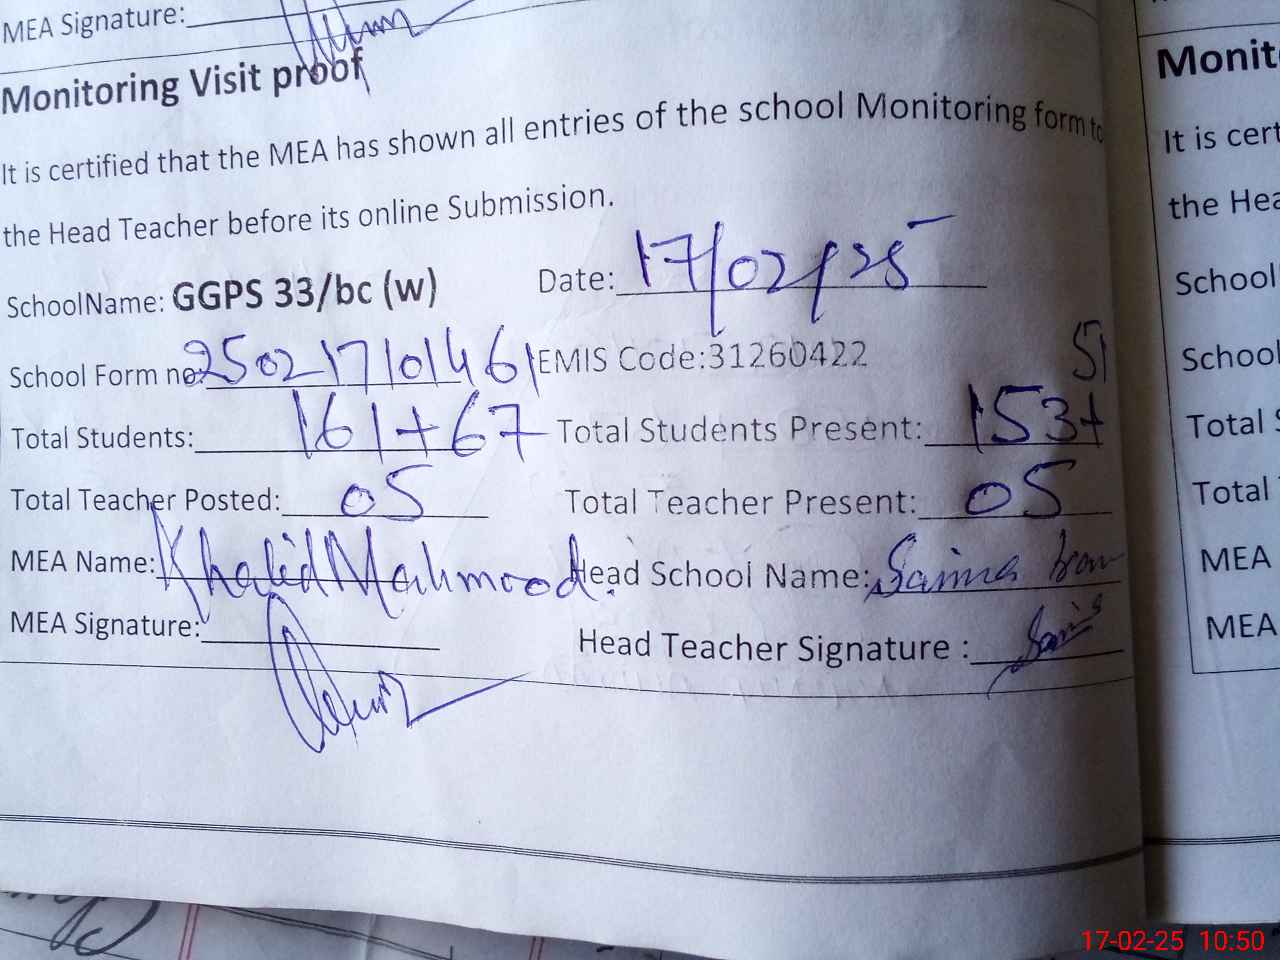 MEA Signature:
Monitoring Visit proof
It is certified that the MEA has shown all entries of the school Monitoring form to
the Head Teacher before its online Submission.
SchoolName: GGPS 33/bc (w) Date: 17/02/25
School Form no: 250217101461 EMIS Code:31260422
Total Students: 161+67 Total Students Present: 153+51
Total Teacher Posted: 05 Total Teacher Present: 05
MEA Name: Khalid Mahmood Head School Name: Saima
MEA Signature: Head Teacher Signature :
Monit
It is cert
the Hea
School
School
Total S
Total
MEA
MEA
17-02-25 10:50